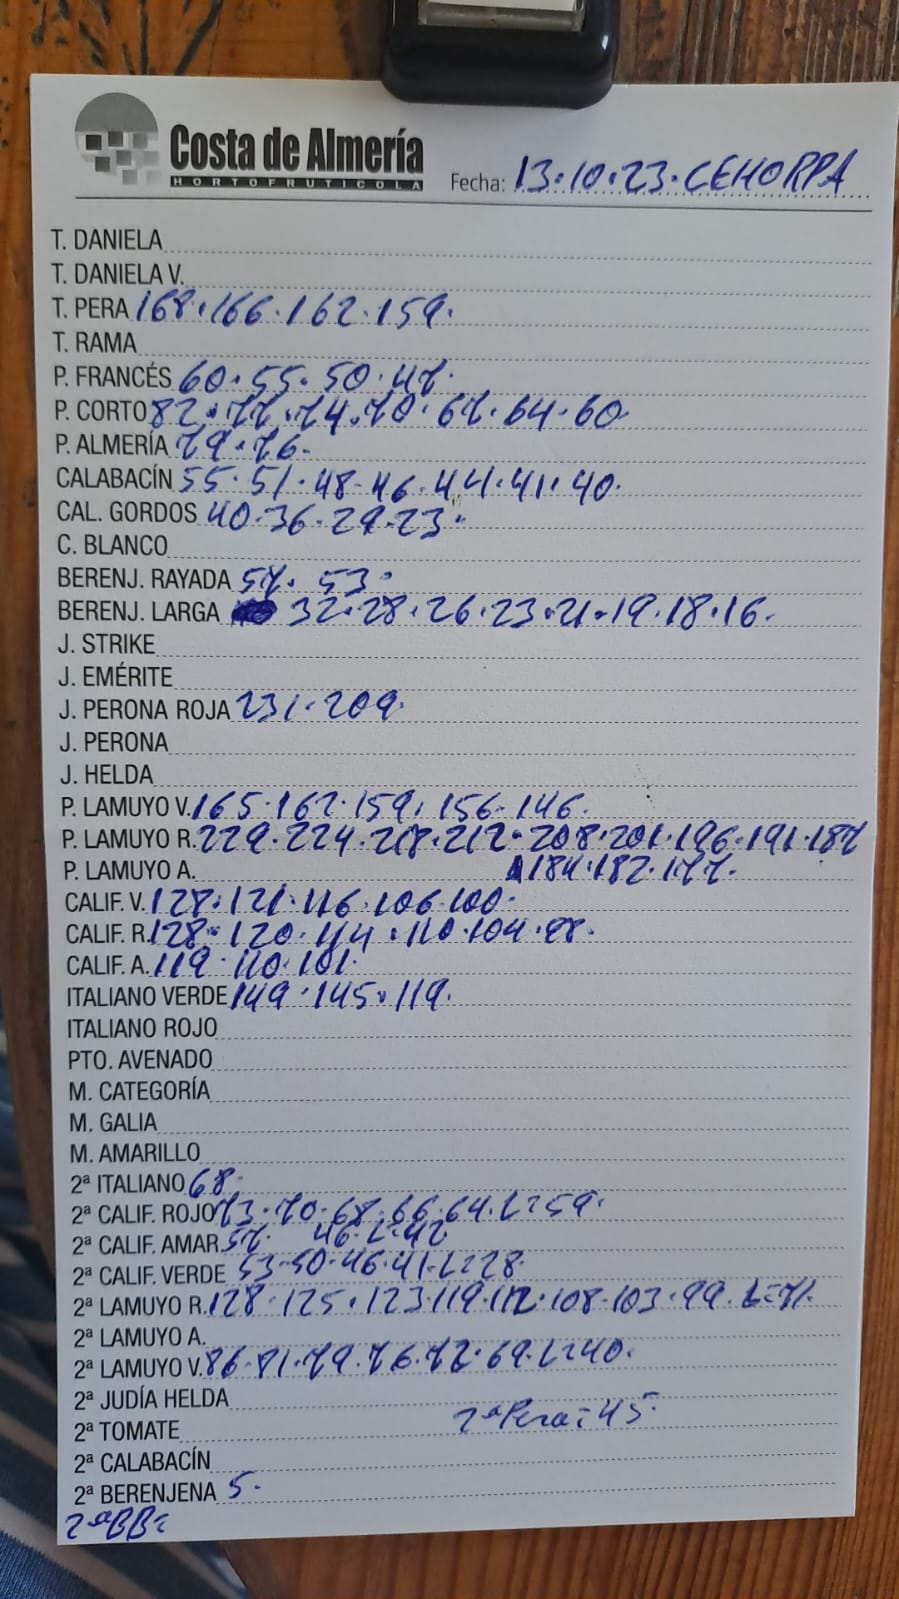 Costa de Almería
HORTOFRUTICOLA
Fecha: 13.10.23. CEHORPA
T. DANIELA
T. DANIELA V.
T. PERA 168.166.162.159.
T. RAMA
P. FRANCÉS 60.55.50.47.
P. CORTO 82.77.74.70.67.64.60
P. ALMERÍA 79.76.
CALABACÍN 55.51.48.46.44.41.40.
CAL. GORDOS 40.36.29.23.
C. BLANCO
BERENJ. RAYADA 57. 53.
BERENJ. LARGA 32.28.26.23.21.19.18.16.
J. STRIKE
J. EMÉRITE
J. PERONA ROJA 231.209.
J. PERONA
J. HELDA
P. LAMUYO V. 165.162.159.156.146.
P. LAMUYO R. 229.224.218.212.208.201.196.191.187
P. LAMUYO A. 184.182.177.
CALIF. V. 128.121.116.106.100.
CALIF. R. 128.120.114.110.104.98.
CALIF. A. 119.110.101.
ITALIANO VERDE 149.145.119.
ITALIANO ROJO
PTO. AVENADO
M. CATEGORÍA
M. GALIA
M. AMARILLO
2ª ITALIANO 68.
2ª CALIF. ROJO 73.70.68.66.64.L=59.
2ª CALIF. AMAR. 57. 46.L=42
2ª CALIF. VERDE 53.50.46.41.L=28.
2ª LAMUYO R. 128.125.123.119.112.108.103.99.L=71.
2ª LAMUYO A.
2ª LAMUYO V. 86.81.79.76.72.69.L=40.
2ª JUDÍA HELDA
2ª TOMATE 2ª Pera=45.
2ª CALABACÍN
2ª BERENJENA 5.